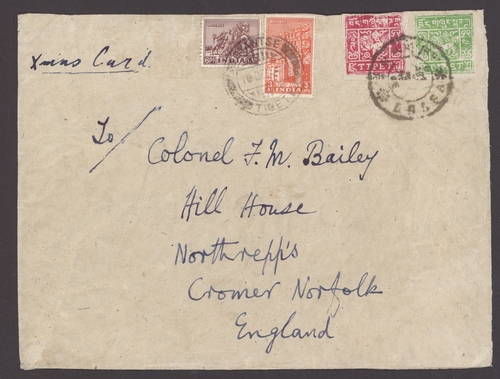 Xmas Card
INDIA
INDIA
TIBET
TIBET
LHASA
To/
Colonel F. M. Bailey
Hill House
Northrepp's
Cromer Norfolk
England